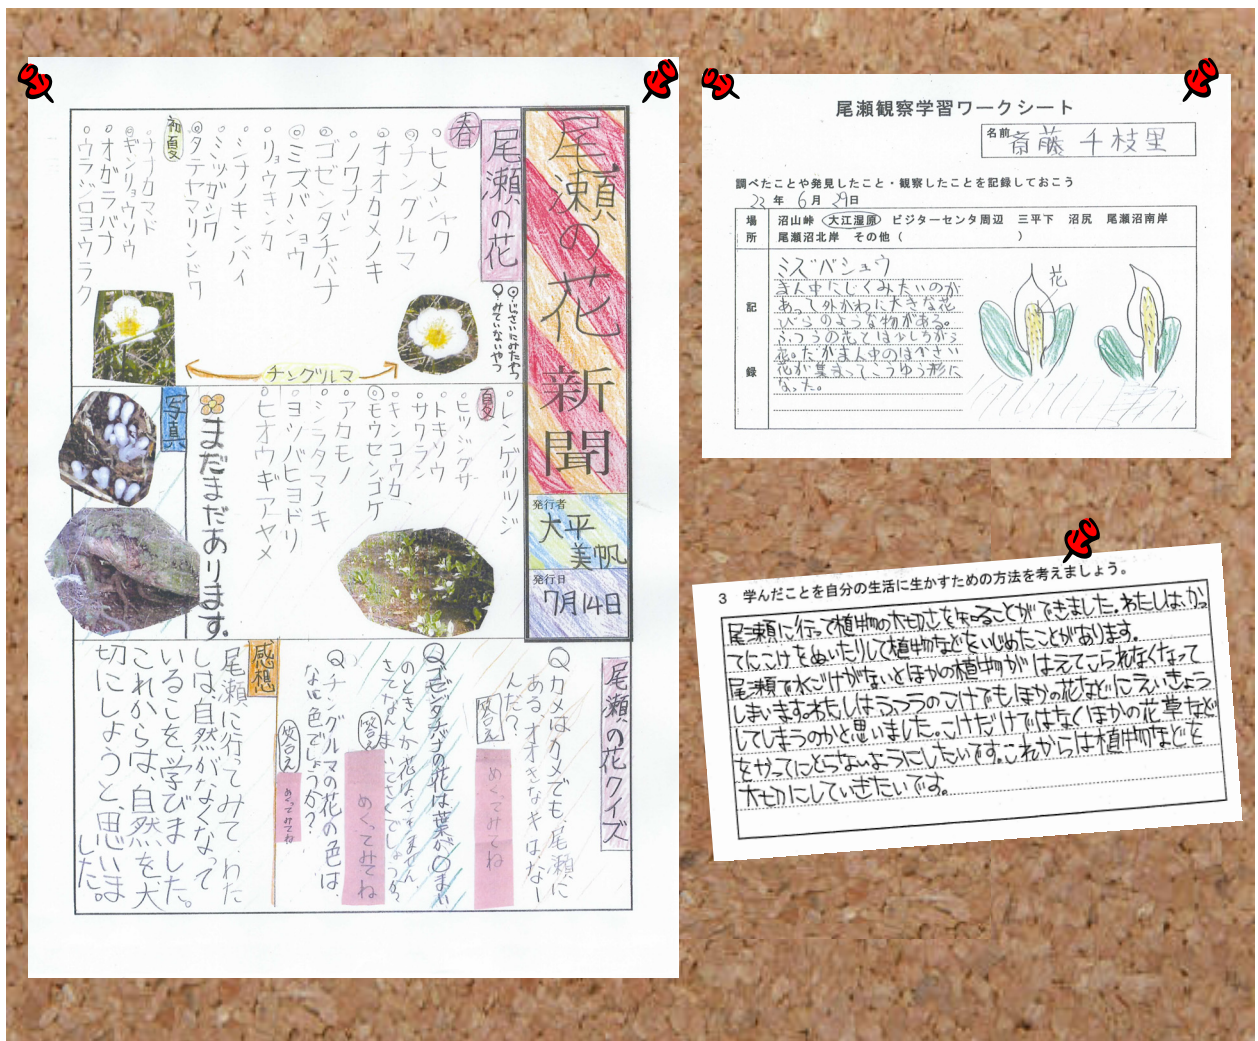 尾瀬の花新聞
発行者
大平
美帆
発行日
7月14日
尾瀬の花
◎じっさいにみたやつ
○みていないやつ
春
○ヒメシャク
◎チングルマ
◎オオカメノキ
○ノウゴウ
◎ゴゼンタチバナ
◎ミズバショウ
○リュウキンカ
○シナノキンバイ
○ミツガシワ
◎タテヤマリンドウ
初夏
○ナナカマド
○ギンリョウソウ
○オガラバナ
○ウラジロヨウラク
チングルマ
○レンゲツツジ
夏
○ヒツジグサ
○トキソウ
○サワラン
○キンコウカ
◎モウセンゴケ
○アカモノ
○シラタマノキ
○ヨツバヒヨドリ
○ヒオウギアヤメ
まだまだあります。
写真
尾瀬の花クイズ
Qカメはカメでも、尾瀬に
ある、オオきなキはなー
んだ?
答え
めくってみてね
Qゴゼンタチバナの花は葉が○まい
のときしか花はさきません。
さてなんまいでさくでしょうか?
答え
めくってみてね
Qチングルマの花の色は、
なに色でしょうか?
答え
めくってみてね
感想
尾瀬に行ってみて、わた
しは、自然がなくなって
いることを学びました。
これからは、自然を大
切にしようと、思いま
した。
尾瀬観察学習ワークシート
名前 斎藤 千枝里
調べたことや発見したこと・観察したことを記録しておこう
22年 6月 29日
場所 沼山峠 大江湿原 ビジターセンタ周辺 三平下 沼尻 尾瀬沼南岸
尾瀬沼北岸 その他( )
記録
ミズバショウ
まん中にしくみたいのが
あって外がわに大きな花
びらのような物がある。
ふつうの花とは少しちがう
花。だがまん中のは小さい
花が集まってこうゆう形に
なった。
花
3 学んだことを自分の生活に生かすための方法を考えましょう。
尾瀬に行って植物の大切さを知ることができました。わたしは、かっ
てにこけをぬいたりして植物などをいじめたことがあります。
尾瀬で水ごけがないとほかの植物がはえてこられなくなって
しまいます。わたしはふつうのこけでもほかの花などにえいきょう
してしまうのかと思いました。こけだけではなくほかの花草など
をかってにとらないようにしたいです。これからは植物などを
大切にしていきたいです。